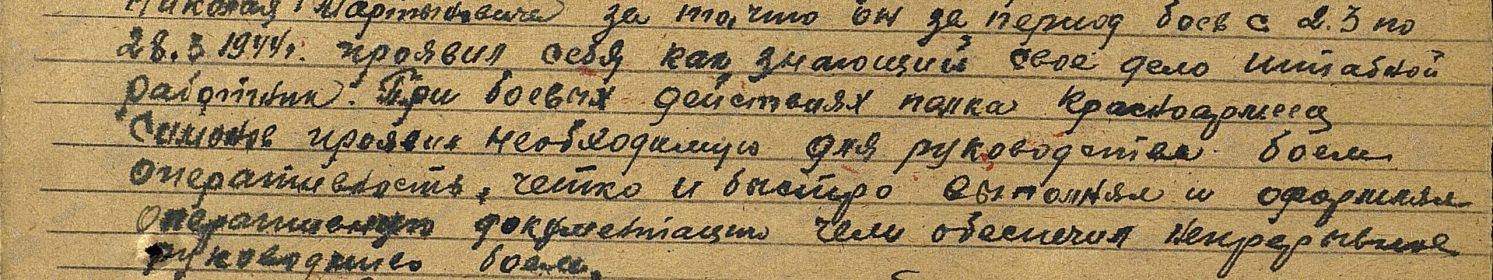 Николая Мартыновича за то, что он за период боев с 2.3 по
28.3 1944г. проявил себя как знающий свое дело штабной
работник. При боевых действиях полка Красноармеец
Симонов проявил необходимую для руководства боем
оперативность, четко и быстро выполнял и оформлял
оперативную документацию чем обеспечил непрерывное
руководство боем.